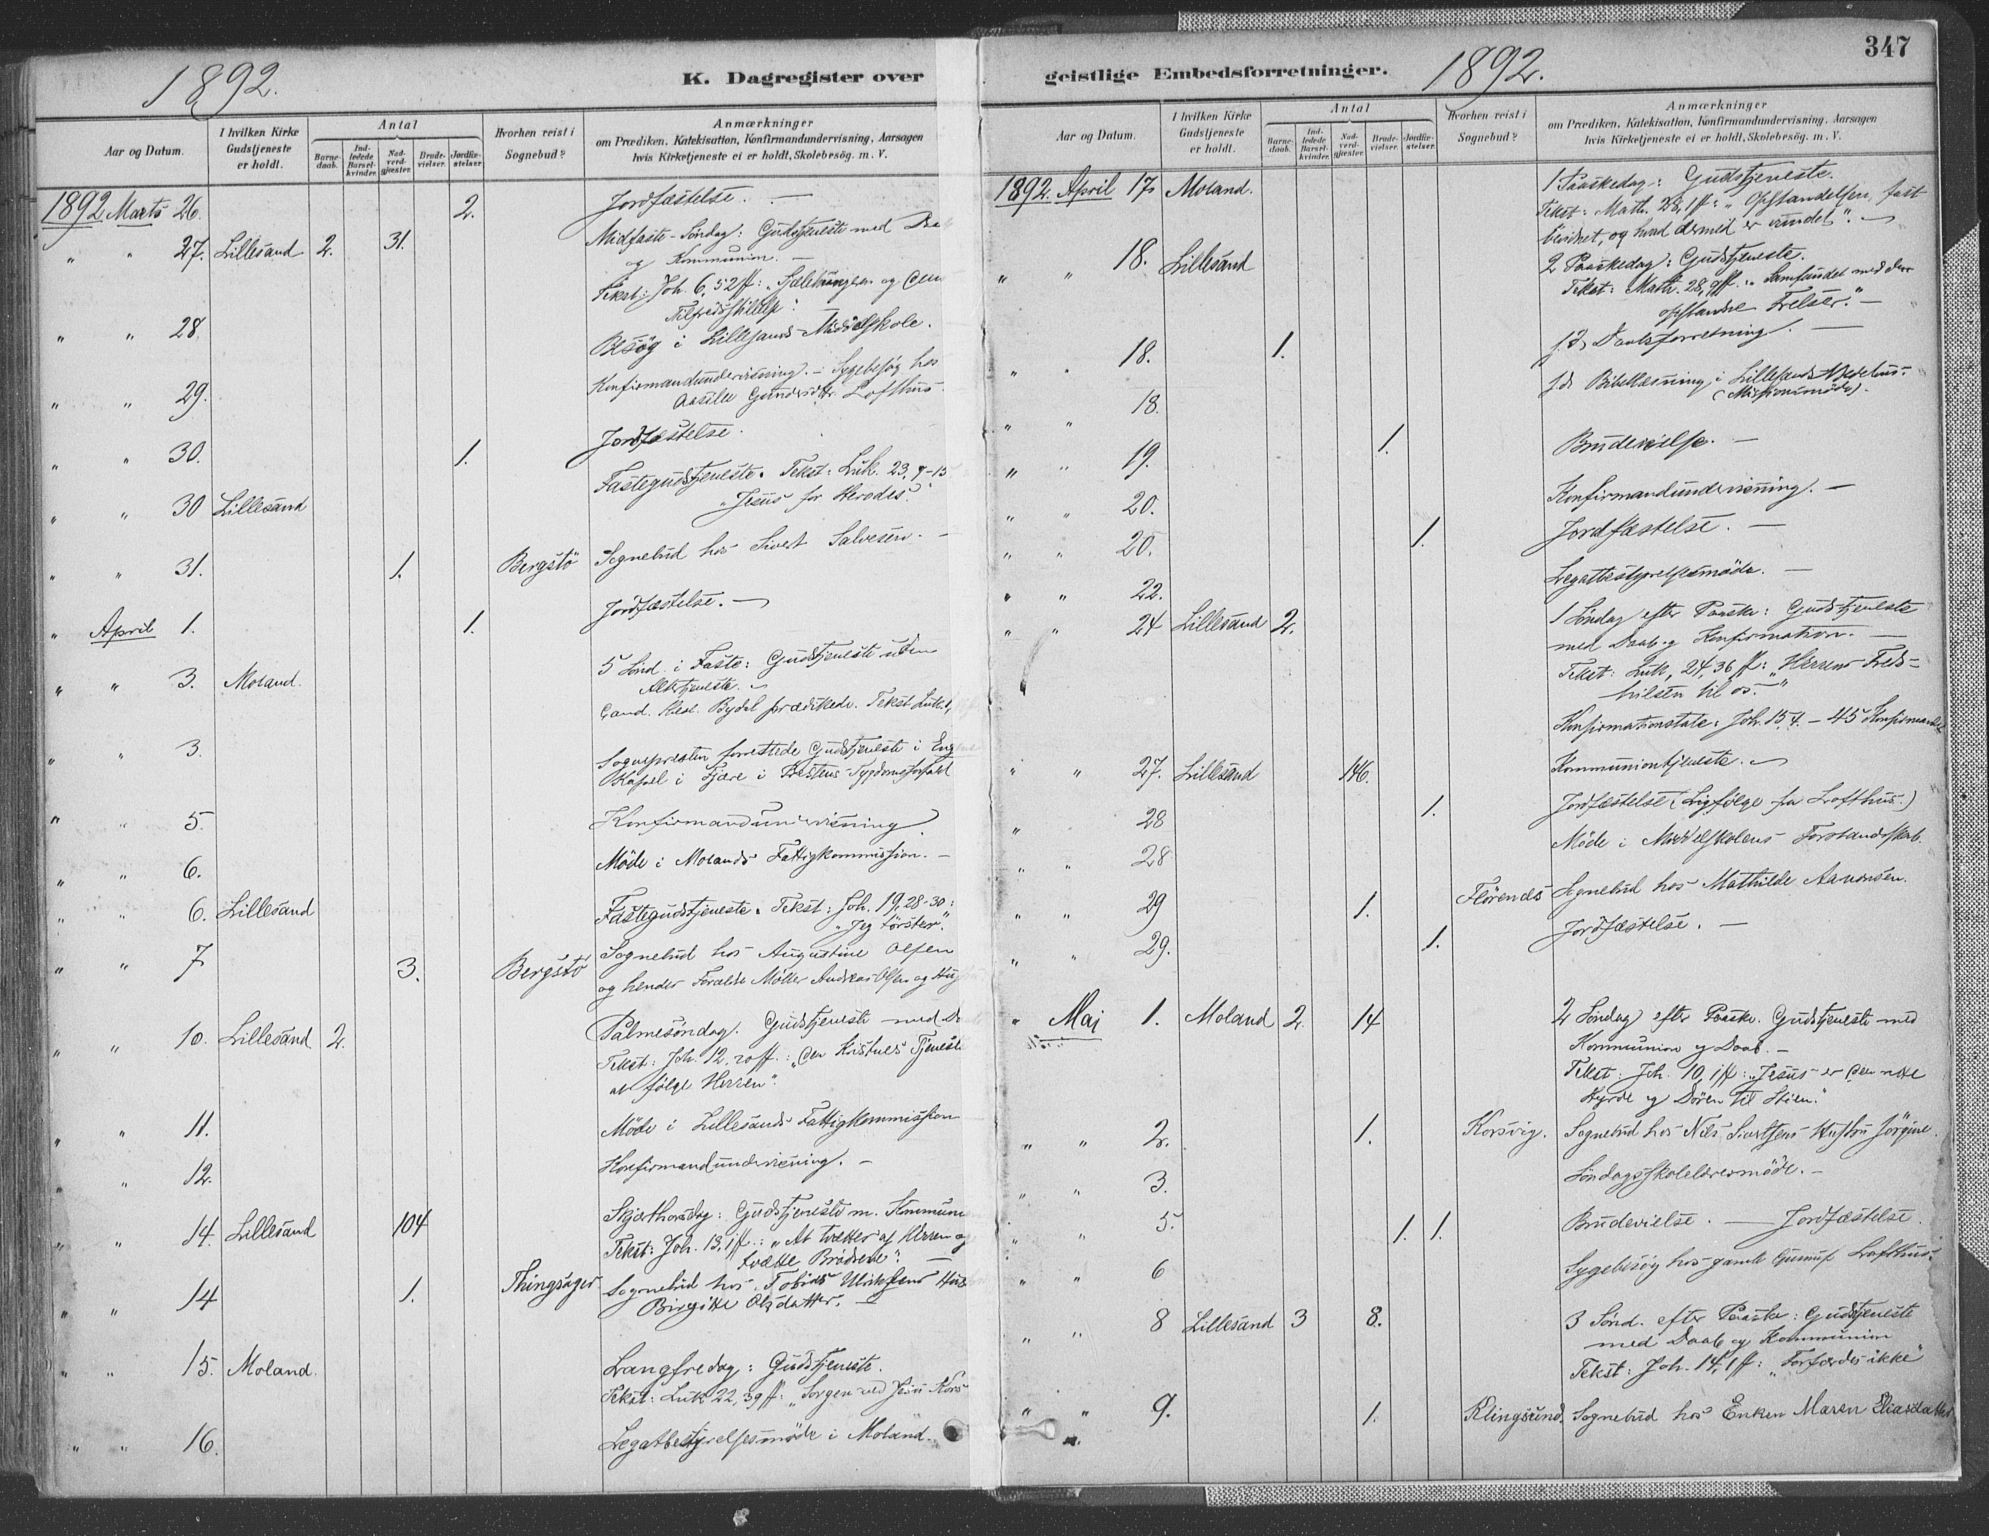 1892.
K. Dagregister over
Aar og Datum.
I hvilken Kirke Gudstjeneste er holdt.
Antal
Barnedaab.
Indledede Barselkvinder.
Nadverdgjester.
Brudevielser.
Jordfæstelser.
Hvorhen reist i Sognebud?
Anmærkninger
om Prædiken, Katekisation, Konfirmandundervisning, Aarsagen
hvis Kirketjeneste ei er holdt, Skolebesög. m. V.
1892 Marts 26. 2. Jordfæstelse. —
" " 27. Lillesand 2. 31. Midfaste-Söndag: Gudstjeneste med
og Kommunion. —
Tekst: Joh. 6, 52 ff: "Sjælehungeren og den
" " 28. Besög i Lillesands Middelskole.
" " 29. Konfirmandundervisning. — Sygebesög hos
Aasille Gundersdtr. Lofthus.
" " 30. 1. Jordfæstelse.
" " 30 Lillesand Fastegudstjeneste. Tekst: Luk. 23, 7-15
"Jesus for Herodes"
" " 31. 1. Bergstö Sognebud hos Sivert Salvesen. —
" April 1. 1. Jordfæstelse. —
" " 3. Moland. 5 Sönd. i Faste: Gudstjeneste uden
Altertjeneste. —
Cand. theol. Bydal prædikede. Tekst Luk. 1,
" " 3. Sognepresten forrettede Gudstjeneste i
Kapel i Fjære i Prestens Sygdomsforfald
" " 5. Konfirmandundervisning.
" " 6. Möde i Molands Fattigkommission. —
" " 6. Lillesand Fastegudstjeneste. Tekst: Joh. 19, 28-30:
"Jeg törster".
" " 7 3. Bergstö Sognebud hos Augustine Olsen
og hendes Forældre Möller Andreas Olsen og
" " 10. Lillesand 2. Palmesöndag. Gudstjeneste med
Tekst: Joh. 12, 20 ff.: "Den Kristnes Tjeneste
at fölge Herren".
" " 11. Möde i Lillesands Fattigkommission
" " 12. Konfirmandundervisning. —
" " 14. Lillesand 104 Skjærthorsdag: Gudstjeneste m.
Tekst: Joh. 13, 1 ff.: "At tvættes af Herren og
tvætte Brödrene". —
" " 14 1. Thingsager Sognebud hos Tobias Ulriksens
Birgitte Olsdatter. —
" " 15. Moland. Langfredag: Gudstjeneste.
Tekst: Luk 22, 39 ff: "Sorgen ved Jesu Kors
" " 16. Legatbestyrelsesmöde i Moland.
geistlige Embedsforretninger.
1892.
347
Aar og Datum.
I hvilken Kirke Gudstjeneste er holdt.
Antal
Barnedaab.
Indledede Barselkvinder.
Nadverdgjester.
Brudevielser.
Jordfæstelser.
Hvorhen reist i Sognebud?
Anmærkninger
om Prædiken, Katekisation, Konfirmandundervisning, Aarsagen
hvis Kirketjeneste ei er holdt, Skolebesög. m. V.
1892 April 17. Moland. 1 Paaskedag: Gudstjeneste.
Tekst: Math. 28, 1 ff: "Opstandelsen, fast
bevidnet, og hvad dermed er vundet". —
" " 18. Lillesand 2 Paaskedag: Gudstjeneste.
Tekst: Math. 28, 9 ff.: "Samfundet med den
opstandne Frelser." —
" " 18. 1. s. D. Daabsforretning. —
" " 18. s. D. Bibellæsning i Lillesands Bedehus.
(Missionsmöde).
" " 19. 1. Brudevielse. —
" " 20. Konfirmandundervisning. —
" " 20. 1. Jordfæstelse. —
" " 22. Legatbestyrelsesmöde. —
" " 24 Lillesand 2. 1 Söndag efter Paaske: Gudstjeneste
med Daab og Konfirmation. —
Tekst: Luk. 24, 36 ff: "Herrens Fredshilsen
til os."
Konfirmationstale: Joh. 15, 4. — 45 Konfirmander
" " 27. Lillesand 146. Kommuniontjeneste. —
" 28 1. Jordfæstelse (Ligfölge fra Lofthus.)
" " 28 Möde i Middelskolens Forstanderskab.
" " 29 1. Flörenæs Sognebud hos Mathilde Aanonsen.
" " 29. 1. Jordfæstelse. —
" Mai 1. Moland 2. 14 2 Söndag efter Paaske. Gudstjeneste med
Kommunion og Daab. —
Tekst: Joh. 10, 1 ff: "Jesus er den rette
Hyrde og Dören til Stien."
" " 2. 1. Korsvig. Sognebud hos Nils Sivertsens Hustru Jörgine.
" " 3. Söndagsskolelærermöde. —
" 5. 1. 1. Brudevielse. — Jordfæstelse.
" " 6 Sygebesög hos gamle Gunnuf Lofthus.
" " 8 Lillesand 3 8. 3 Sönd. efter Paaske: Gudstjeneste
med Daab og Kommunion
Tekst: Joh. 14, 1 ff: "Forfærdes ikke"
" " 9. 1. Klingsund. Sognebud hos Enken Maren Eliasdatter